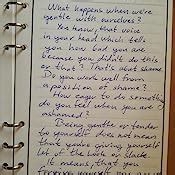 What happens when we're
gentle with ourselves?
You know, that voice
in your head which tells
you how bad you are
because you didn't do this
or that? That's about shame.
Do you work well from
a position of shame?
How eager to do something
do you feel when you are
ashamed?
Being gentle or tender
to yourself does not mean
that you're giving yourself
lot of the book or slack.
It means, that you